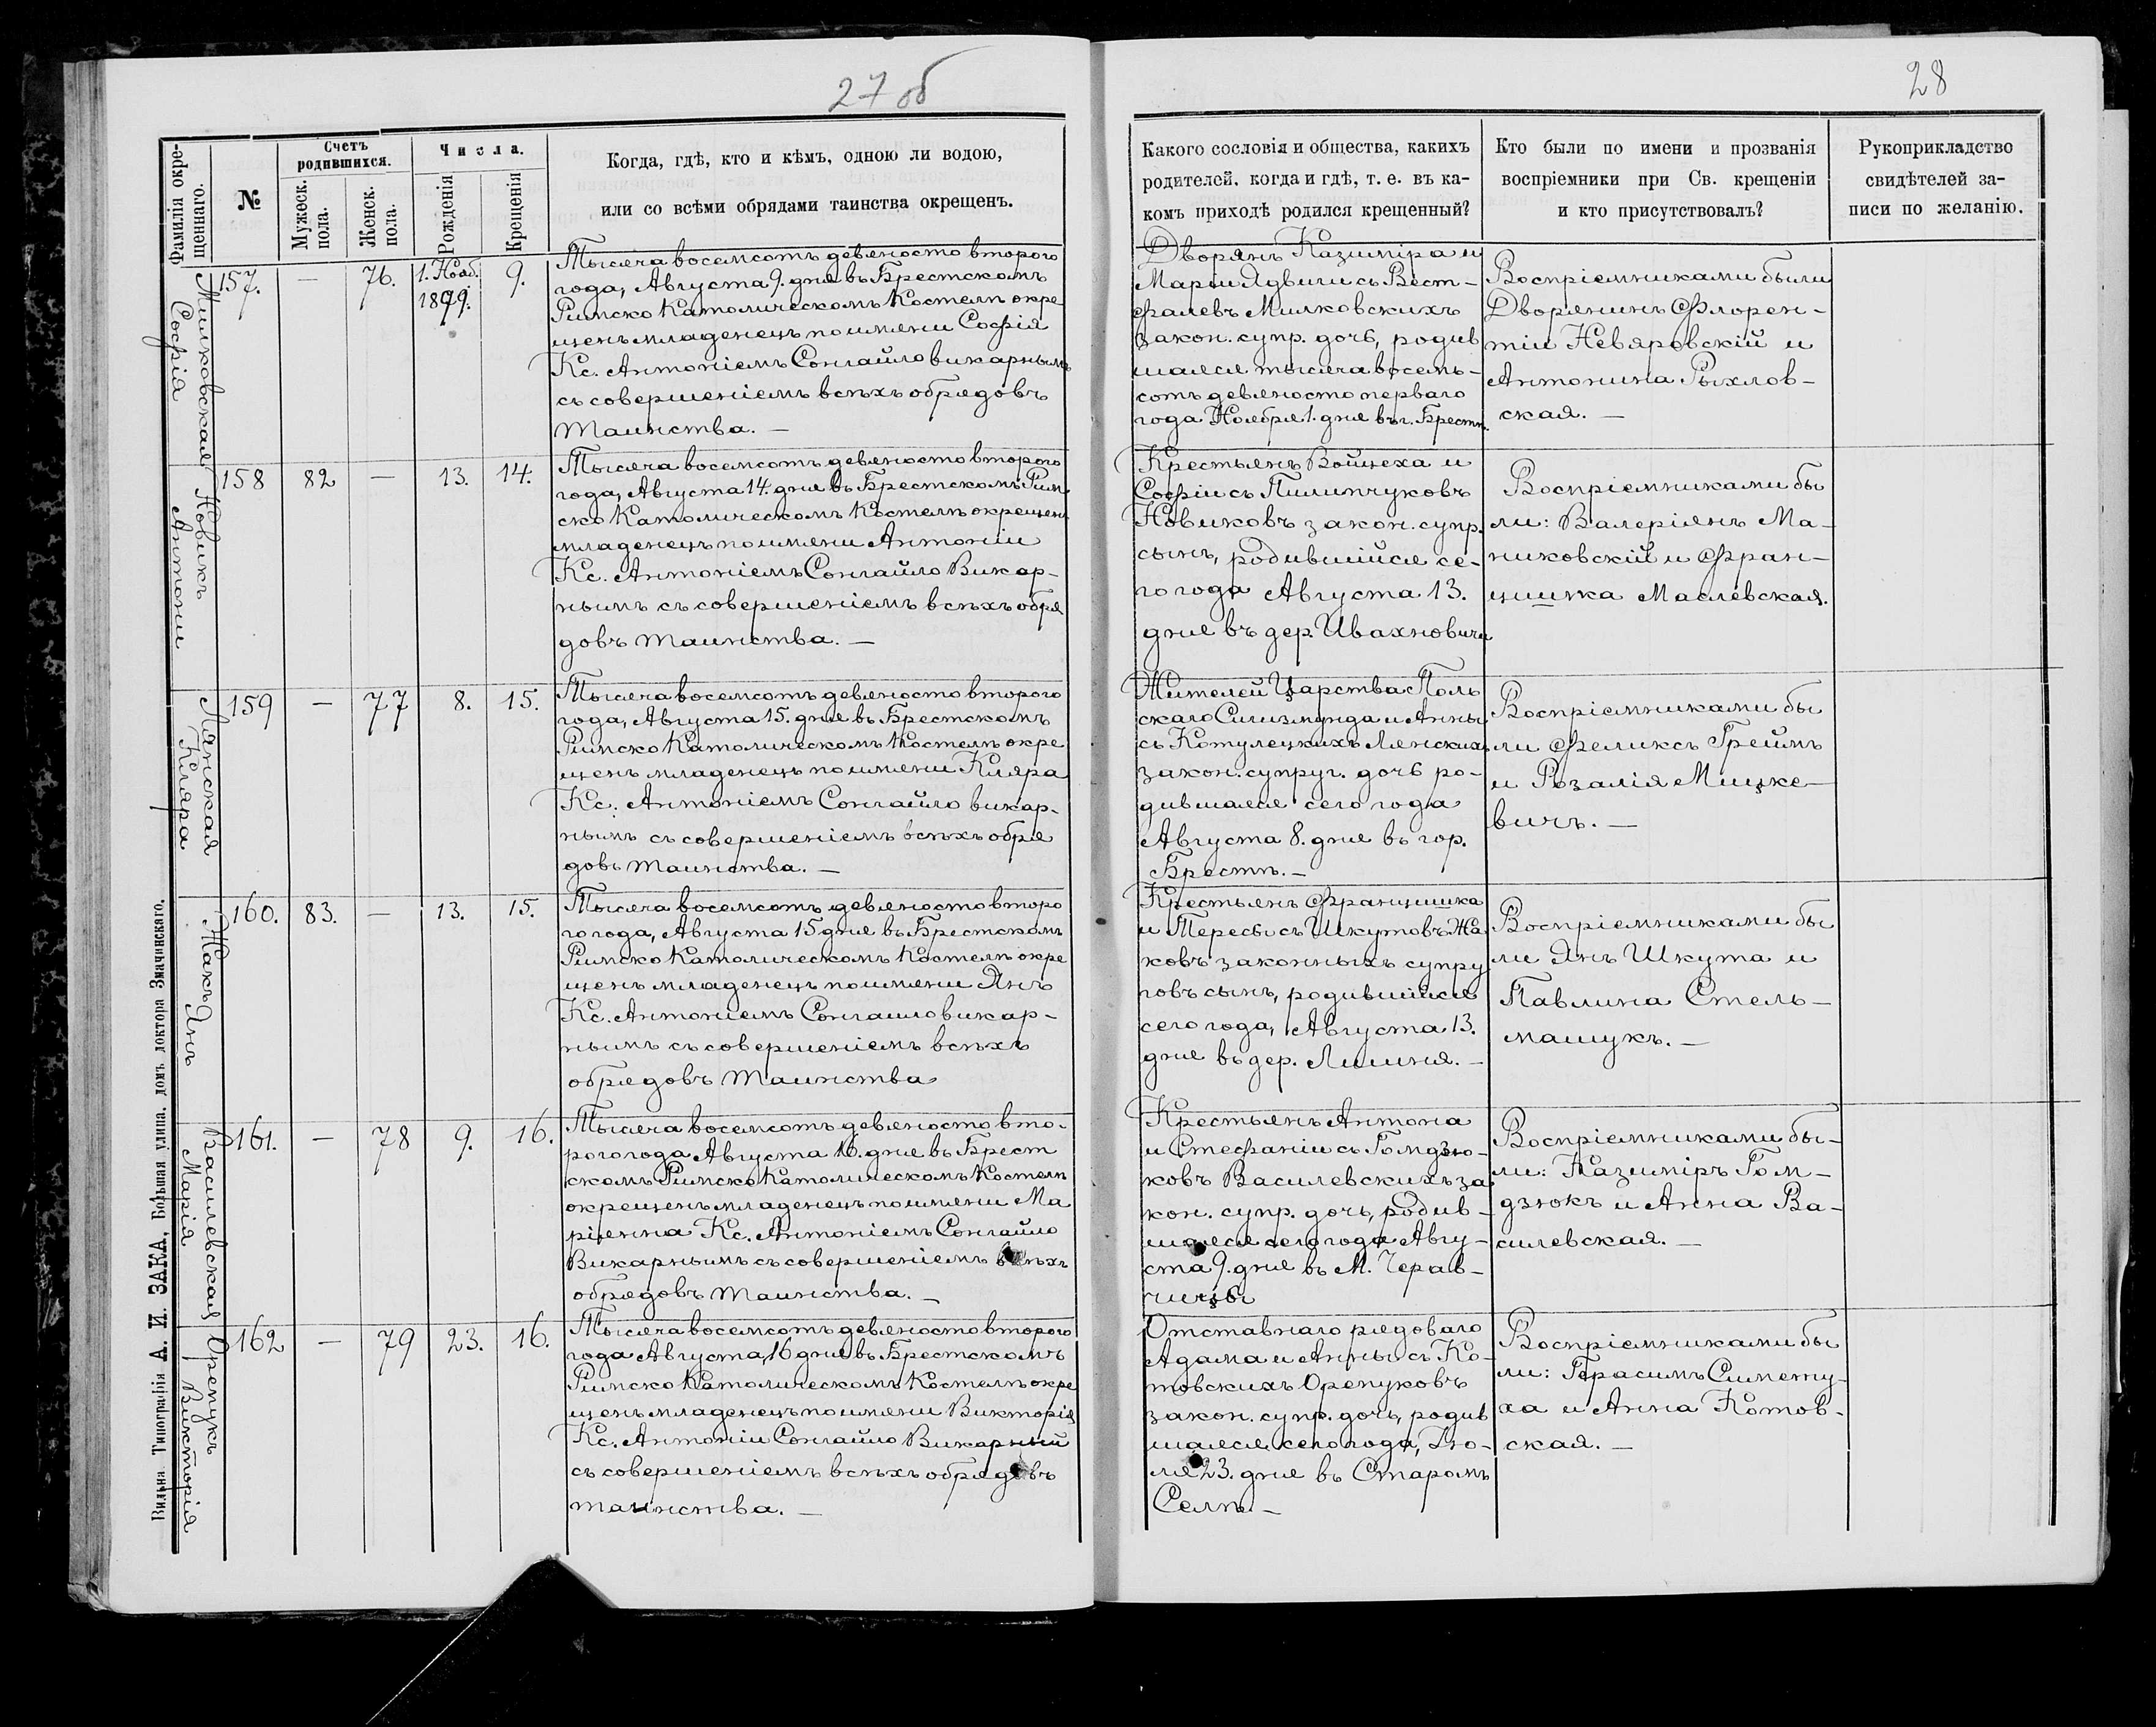 27 об
28
Фамилія окре-
щеннаго.
№
Счетъ
родившихся.
Мужеск.
пола.
Женск.
пола.
Числа.
Рожденія
Крещенія
Когда, гдѣ, кто и кѣмъ, одною ли водою,
или со всѣми обрядами таинства окрещенъ.
Какого сословія и общества, какихъ
родителей, когда и гдѣ, т. е. въ ка-
комъ приходѣ родился крещенный?
Кто были по имени и прозванія
воспріемники при Св. крещеніи
и кто присутствовалъ?
Рукоприкладство
свидѣтелей за-
писи по желанію.
Милковская
Софія
157.
—
76.
1. Нояб.
1891.
9.
Тысяча восемсотъ девяносто второго
года, Августа 9. дня въ Брестскомъ
Римско Католическомъ Костелѣ окре
щенъ младенецъ по имени Софія
Кс. Антоніемъ Сонгайло викарнымъ
съ совершеніемъ всѣхъ обрядовъ
Таинства. —
Дворянъ Казиміра и
Маріи Ядвиги съ Вест-
фалевъ Милковскихъ
закон. супр. дочь, родив
шаяся тысяча восемь-
сотъ девяносто перваго
года Ноября 1. дня въ г. Брестѣ.
Воспріемниками были
Дворянинъ Флорен-
тіи Невяровскій и
Антонина Рыхлов-
ская. —
Новикъ
Антони
158
82
—
13.
14.
Тысяча восемсотъ девяносто второго
года, Августа 14. дня въ Брестскомъ Рим
ско Католическомъ Костелѣ окрещенъ
младенецъ по имени Антоніи
Кс. Антоніемъ Сонгайло Викар-
нымъ съ совершеніемъ всѣхъ обря
довъ таинства. —
Крестьянъ Войцеха и
Софіи съ Пилипчуковъ
Новиковъ закон. супр.
сынъ, родившійся се-
го года Августа 13.
дня въ дер. Ивахновичи
Воспріемниками бы
ли: Валеріянъ Ма-
никовскій и Фран-
цишка Маслевская.
Лянская
Кляра
159
—
77
8.
15.
Тысяча восемсотъ девяносто второго
года, Августа 15. дня въ Брестскомъ
Римско Католическомъ Костелѣ окре
щенъ младенецъ по имени Кляра
Кс. Антоніемъ Сонгайло викар-
нымъ съ совершеніемъ всѣхъ обря
довъ таинства. —
Жителей Царства Поль
скаго Сигизмунда и Анны
съ Котулецкихъ Лянскихъ
закон. супруг. дочь ро-
дившаяся сего года
Августа 8. дня въ гор.
Брестѣ. —
Воспріемниками бы
ли Феликсъ Греймъ
и Розалія Мицке-
вичъ. —
Жакъ
Янъ
160.
83.
—
13.
15.
Тысяча восемсотъ девяносто второ
го года, Августа 15 дня въ Брестскомъ
Римско Католическомъ Костелѣ окре
щенъ младенецъ по имени Янъ
Кс. Антоніемъ Сонгаило викар-
нымъ съ совершеніемъ всѣхъ
обрядовъ таинства
Крестьянъ Францишка
и Тересы съ Шкутовъ Жа
ковъ законныхъ супру
говъ сынъ, родившійся
сего года, Августа 13.
дня въ дер. Лишня. —
Воспріемниками бы
ли Янъ Шкута и
Павлина Стель-
машукъ. —
Василевская
Марія
161.
—
78
9.
16.
Тысяча восемсотъ девяносто вто-
рого года Августа 16. дня въ Брест
скомъ Римско Католическомъ Костелѣ
окрещенъ младенецъ по имени Ма
ріянна Кс. Антоніемъ Сонгайло
Викарнымъ съ совершеніемъ всѣхъ
обрядовъ таинства. —
Крестьянъ Антона
и Стефаніи съ Гомдзю-
ковъ Василевскихъ за
кон. супр. дочь, родив-
шаяся сего года Авгу-
ста 9. дня въ М. Черав-
чицы
Воспріемниками бы-
ли: Казиміръ Гом-
дзюкъ и Анна Ва-
силевская. —
Орепукъ
Викторія
162
—
79
23.
16.
Тысяча восемсотъ девяносто второго
года Августа 16 дня въ Брестскомъ
Римско Католическомъ Костелѣ окре
щенъ младенецъ по имени Викторія
Кс. Антоніи Сонгайло Викарный
съ совершеніемъ всѣхъ обрядовъ
таинства. —
Отставнаго рядоваго
Адама и Анны съ Ко-
товскихъ Орепуковъ
закон. супр. дочь, родив
шаяся сего года, Ію-
ля 23. дня въ Старомъ
Селѣ. —
Воспріемниками бы
ли: Герасимъ
ха и Анна Котов-
ская. —
Вильна Типографія А. И. ЗАКА, Большая улица, домъ доктора Змачинскаго.